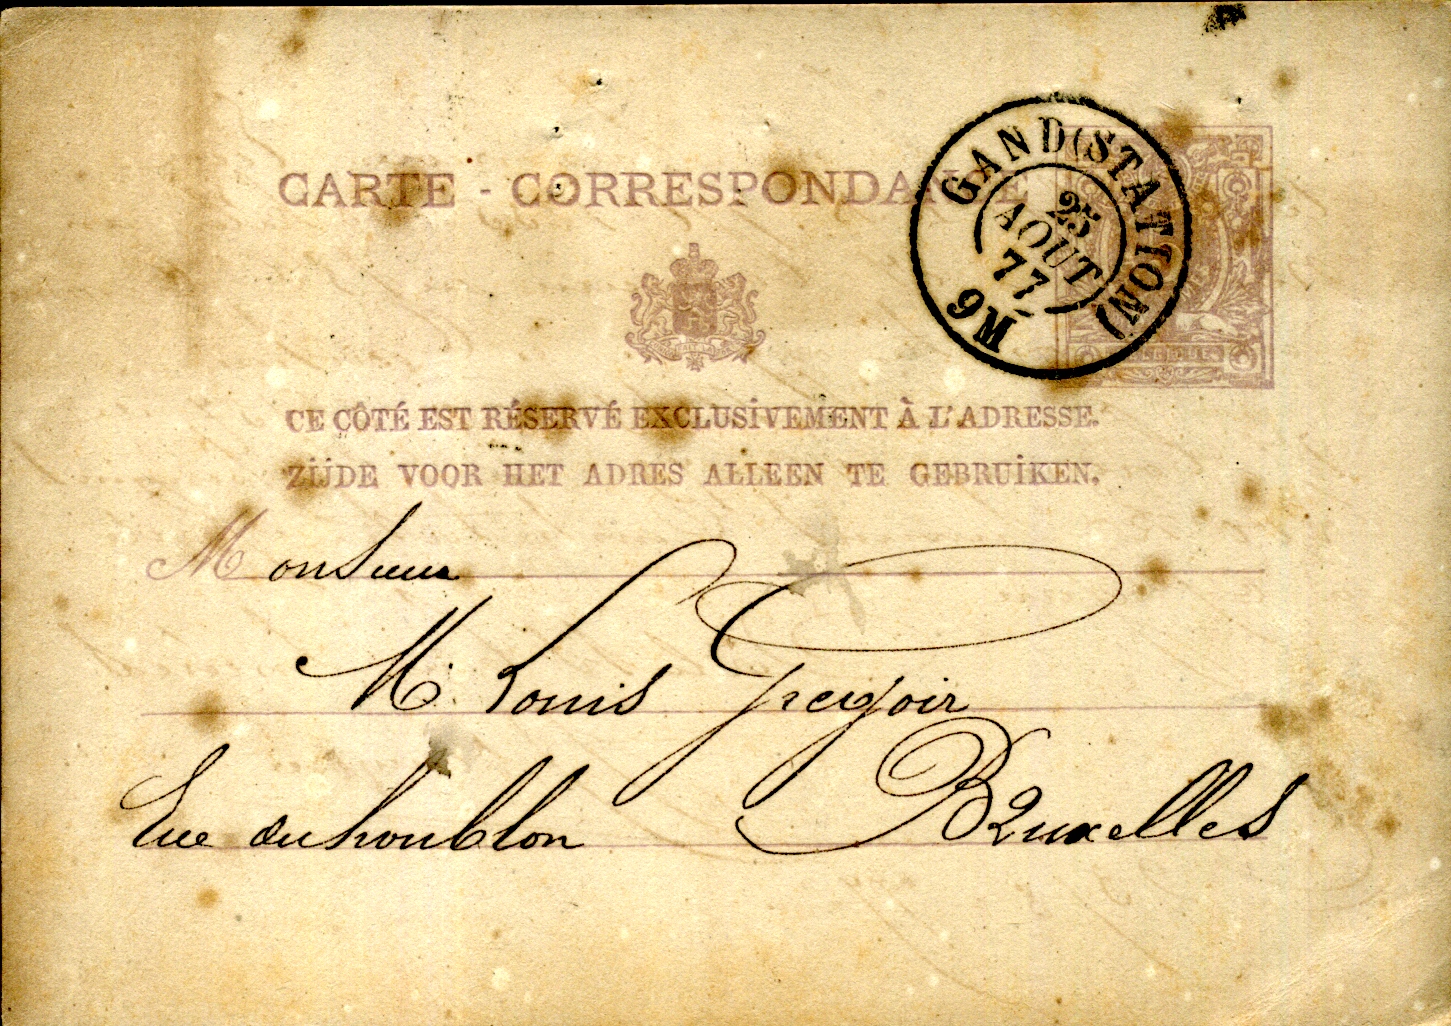 CARTE - CORRESPONDANCE
GAND (STATION)
25
AOUT
77
9M
CE CÔTÉ EST RÉSERVÉ EXCLUSIVEMENT À L'ADRESSE.
ZIJDE VOOR HET ADRES ALLEEN TE GEBRUIKEN.
Monsieur
M. Louis Gregoir
Rue du houblon Bruxelles